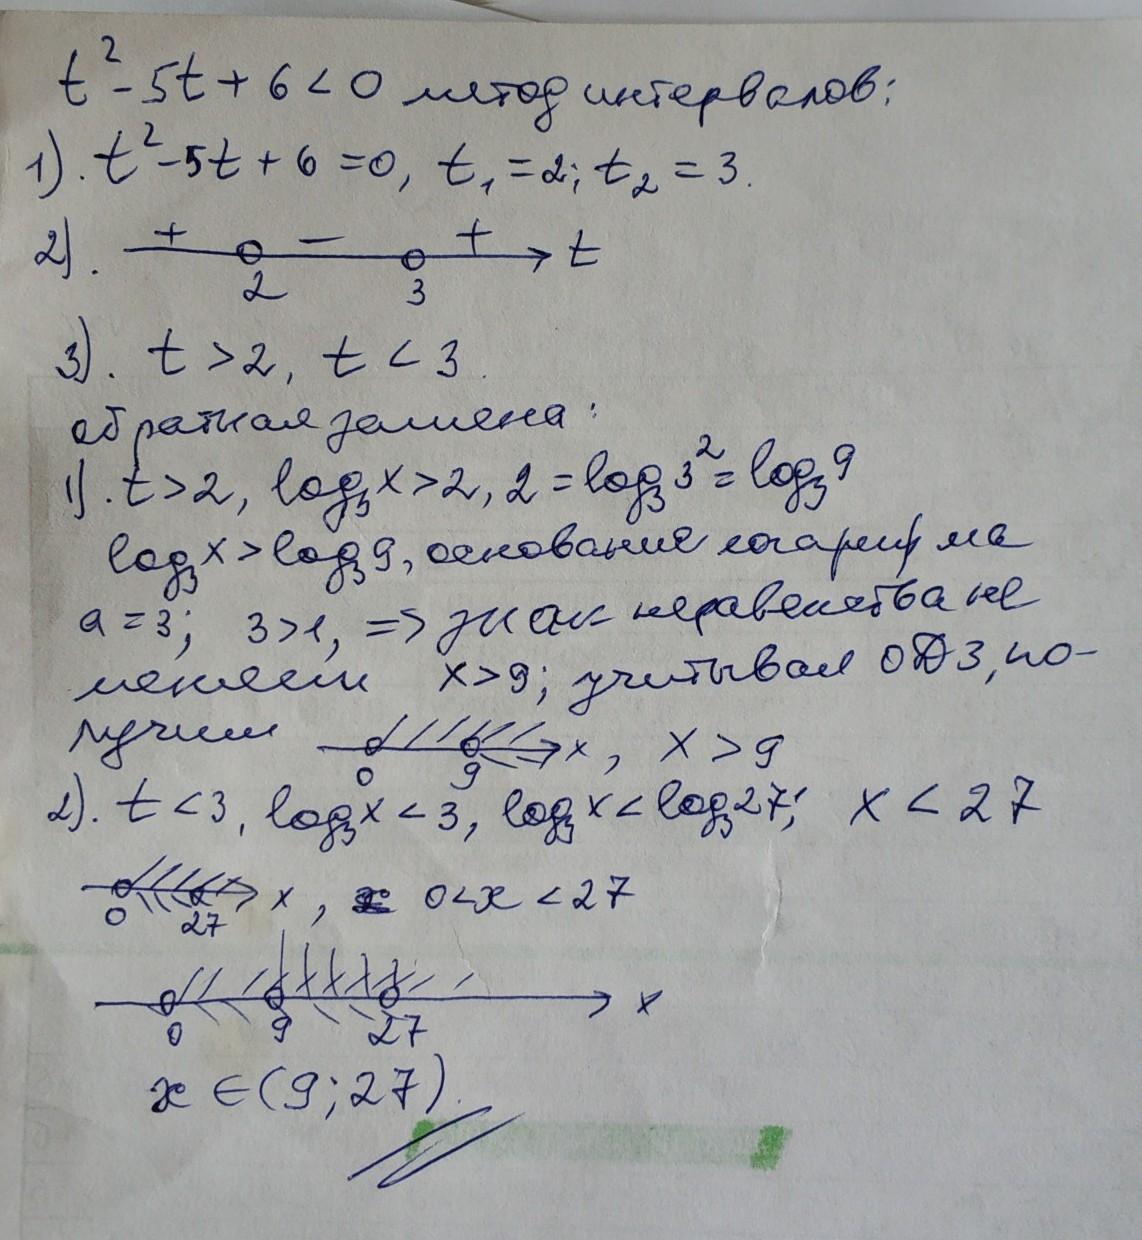 t² - 5t + 6 < 0 метод интервалов:
1). t² - 5t + 6 = 0, t₁ = 2; t₂ = 3.
2). + − + t
2 3
3). t > 2, t < 3.
обратная замена:
1). t > 2, log₃x > 2, 2 = log₃3² = log₃9
log₃x > log₃9, основание логарифма
a = 3; 3 > 1, => знак неравенства не
меняем x > 9; учитывая ОДЗ, по-
лучим x, x > 9
0 9
2). t < 3, log₃x < 3, log₃x < log₃27; x < 27
x, 0 < x < 27
0 27
x
0 9 27
x ∈ (9; 27).